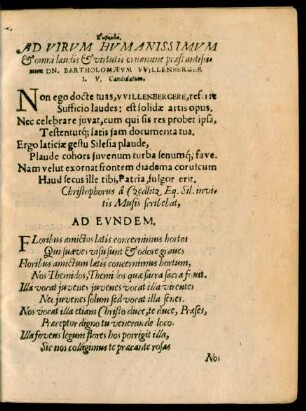 AD VIRVM HVMANISSIMVM
& omni laudis & virtutis ornamine præstantissi-
mum DN. BARTHOLOMÆVM VVILLENBERGER
I. V. Candidatum.
Non ego docte tuas, VVILLENBERGERE, referre
Sufficio laudes: est solidæ artis opus.
Nec celebrare juvat, cum qui sis res probet ipsa,
Testentutq; satis jam documenta tua.
Ergo laticiæ gestu Silesia plaude,
Plaude cohors juvenum turba senumq; fave.
Nam velut exornat frontem diadema coruscum
Haud secus ille tibi, Patria, fulgor erit.
Christophorus à Czedlitz Eq. Sil. invi-
tis Musis scribebat,
AD EVNDEM.
Floribus amictos latis concernimus hortos
Qui suaves visu sunt & odore graves
Floribus amictum latis concernimus hortum,
Nos Themidos, Themidos quæ sacra sacra fruit.
Illa vocat juvenes juvenes vocat illa virentes
Nec juvenes solum sed vocat illa senes.
Nos vocat illa etiam Christo duce, te duce, Præses,
Præceptor digno tu venerende loco.
Illa fovens legum flores hos porrigit illa,
Sic nos colligimus te præeunte rosas
Nos